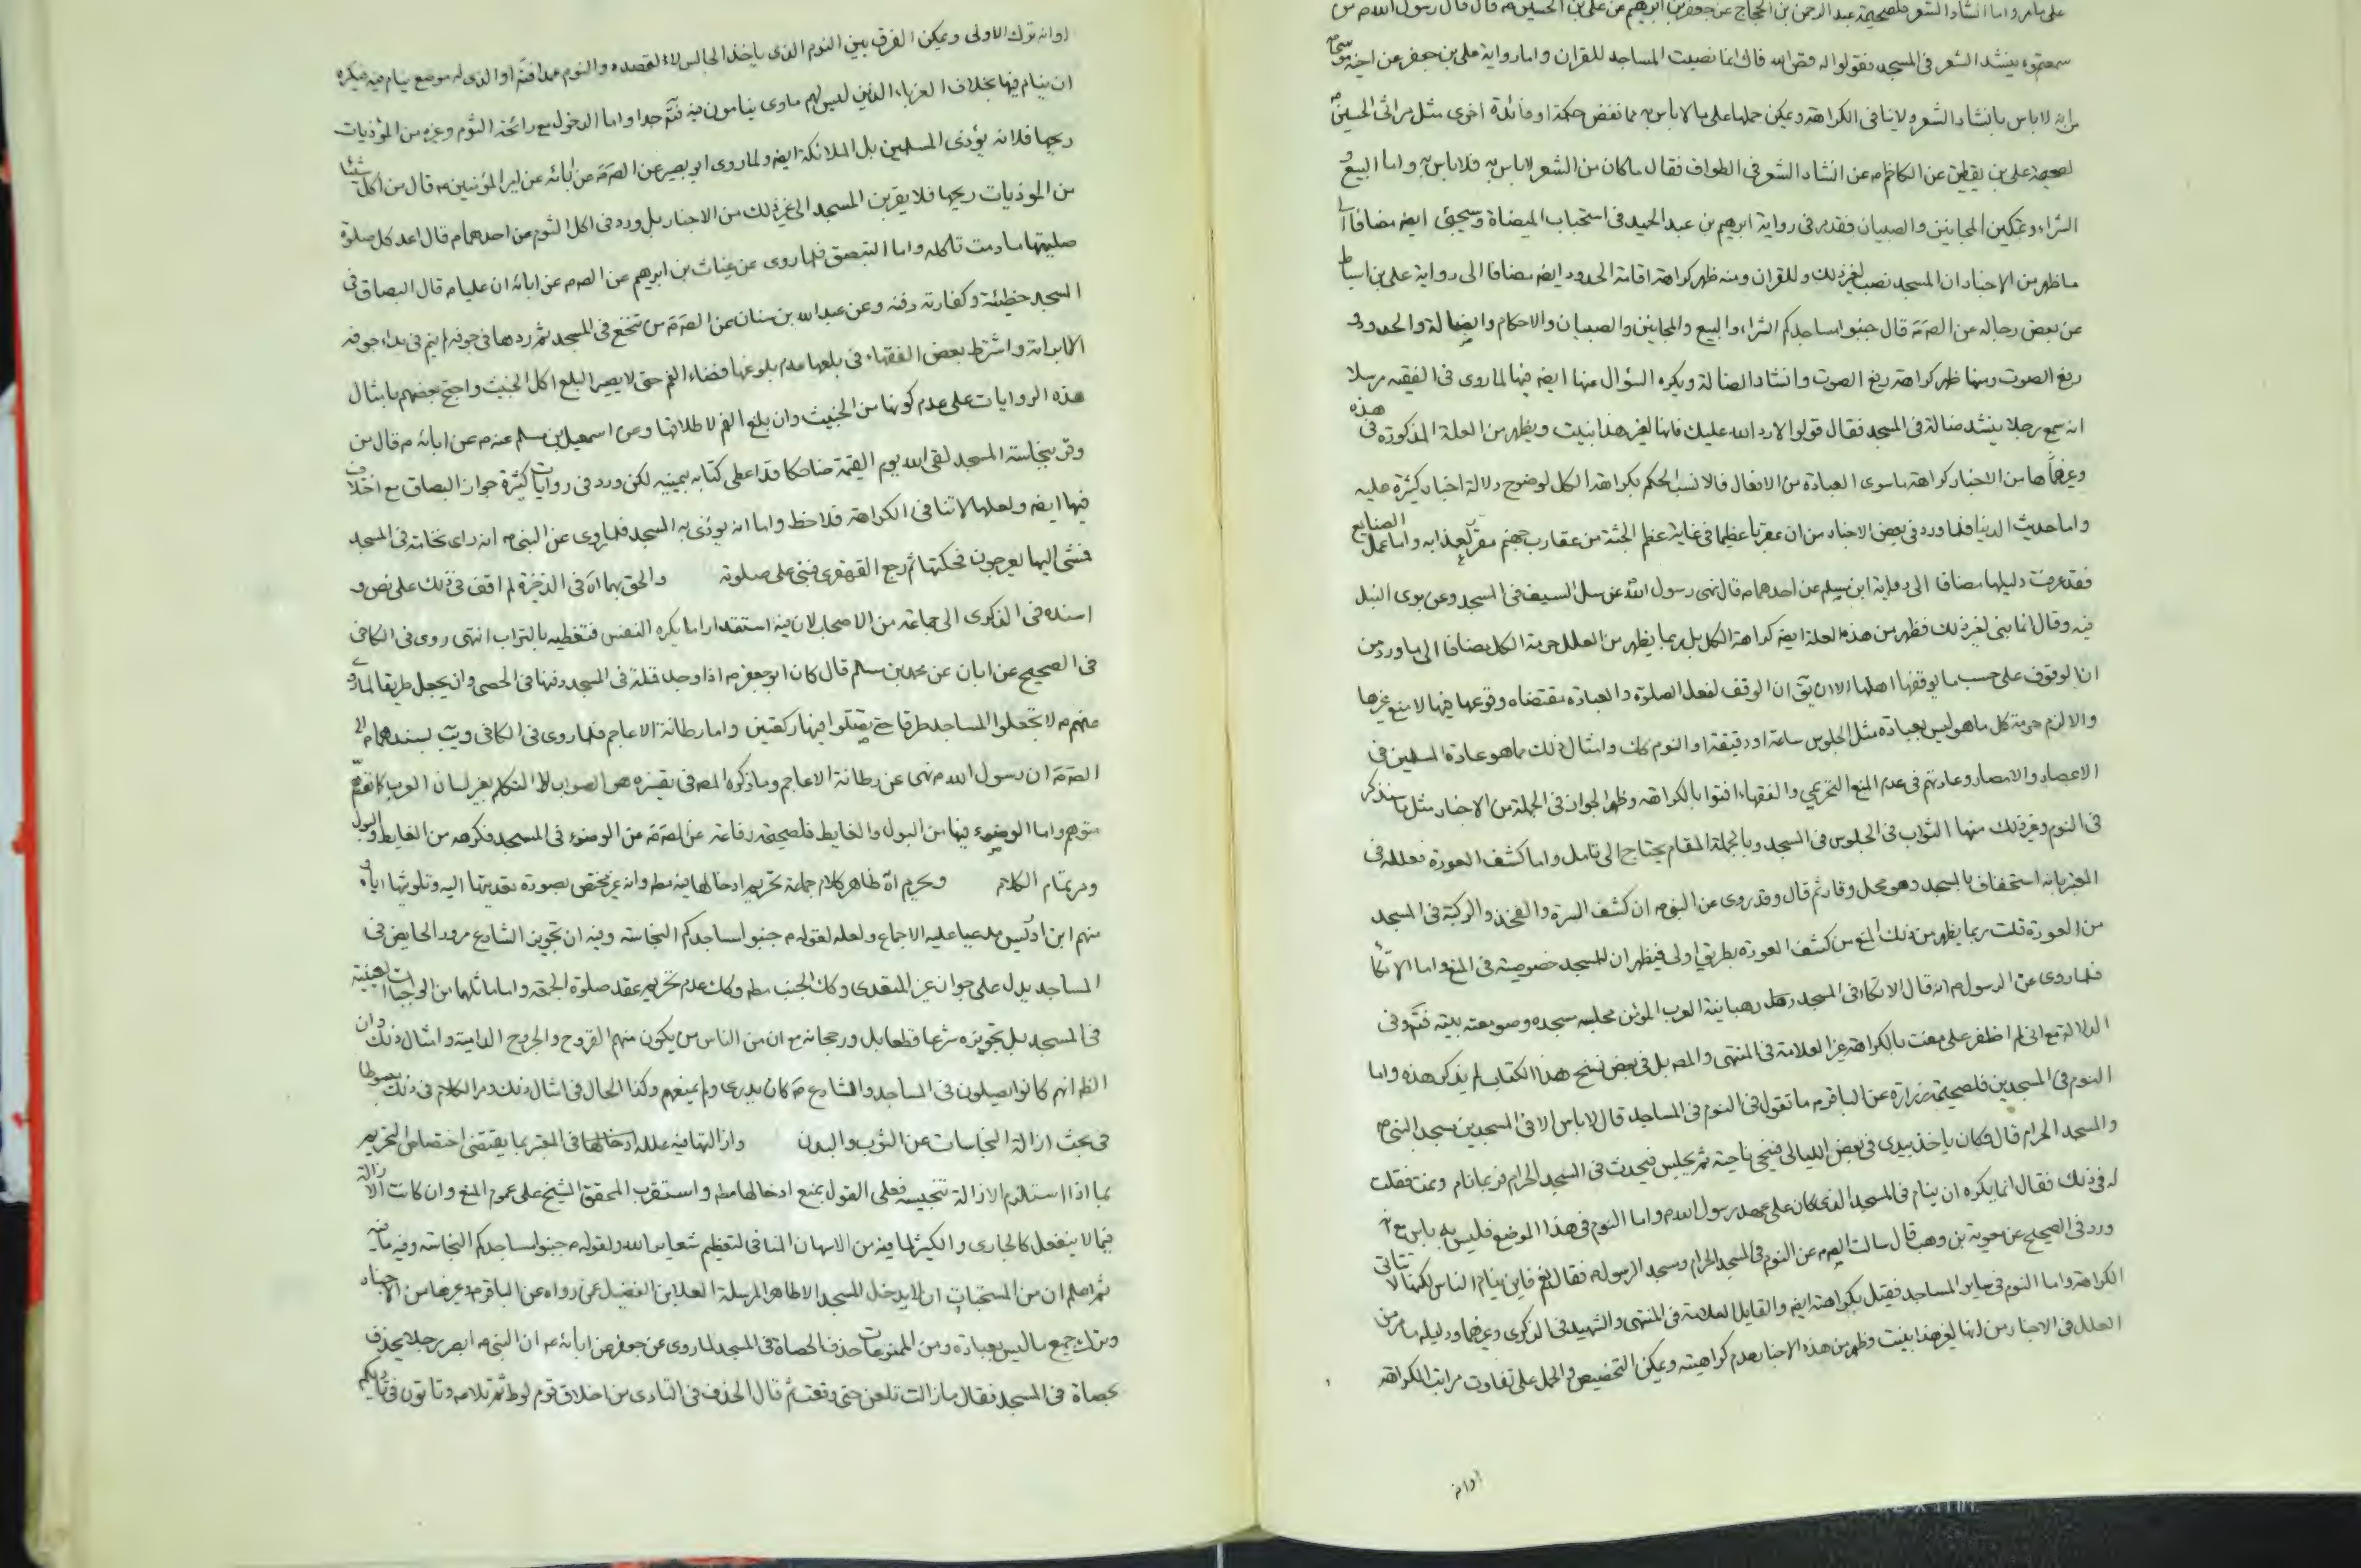 على ما مر واما انشاد الشعر فلصحيحة عبد الرحمن بن الحجاج عن جعفر بن ابرهيم عن على بن الحسين ع قال قال رسول الله ص من
سمعتموه ينشد الشعر فى المسجد فقولوا له فض الله فاك انما نصبت المساجد للقران واما رواية على بن جعفر عن اخيه موسى
من انه لا باس بانشاد الشعر ولا ينافى الكراهة ويمكن حملها على ما لا باس به مما تضمن حكمة او فائدة اخرى مثل مراثى الحسين
لصحيحة على بن يقطين عن الكاظم ع عن انشاد الشعر فى الطواف فقال ما كان من الشعر لا باس به فلا باس به واما البيع و
الشراء وتمكين المجانين والصبيان فقد مر فى رواية ابرهيم بن عبد الحميد فى استحباب الميضاة وسيجئ ايضا مضافا الى
ما ظهر من الاخبار ان المسجد نصب لغير ذلك وللقران ومنه ظهر كراهة اقامة الحدود ايضا مضافا الى رواية على بن اسباط
عن بعض رجاله عن الص ع قال جنبوا مساجدكم الشراء والبيع والمجانين والصبيان والاحكام والضالة والحدود و
رفع الصوت ومنها ظهر كراهة رفع الصوت وانشاد الضالة ويكره السؤال عنها ايضا فيها لما روى فى الفقيه مرسلا
انه سمع رجلا ينشد ضالة فى المسجد فقال قولوا لا رد الله عليك فانها لغير هذا بنيت ويظهر من العلة المذكورة فى هذه
وغيرها من الاخبار كراهة ما سوى العبادة من الافعال فالانسب الحكم بكراهة الكل لوضوح دلالة اخبار كثيرة عليه
واما حديث الدنيا فلما ورد فى بعض الاخبار من ان عقربا عظيما فى غاية عظم الجثة من عقارب جهنم مقر لعذابه واما عمل الصنايع
فقد عرفت دليلها مضافا الى رواية ابن مسلم عن احدهما ع قال نهى رسول الله عن سل السيف فى المسجد وعن برى النبل
فيه وقال انما بنى لغير ذلك فظهر من هذه العلة ايضا كراهة الكل بل ربما يظهر من العلل حرمة الكل مضافا الى ما ورد من
ان الوقوف على حسب ما يوقفها اهلها الا ان يق ان الوقف لفعل الصلوة والعبادة مقتضاه وقوعها فيها لا منع غيرها
والا لزم حرمة كل ما هو ليس بعبادة مثل الجلوس ساعة او دقيقة او النوم كك وامثال ذلك مما هو عادة المسلمين فى
الاعصار والامصار وعادتهم فى عدم المنع التحريمى والفقهاء افتوا بالكراهة وظهر الجواز فى الجملة من الاخبار مثل ما سنذكر
فى النوم وغير ذلك منها الثواب فى الجلوس فى المسجد وبالجملة المقام يحتاج الى تامل واما كشف العورة فعلله فى
المعتبر بانه استخفاف بالمسجد وهو محل وقار ثم قال وقد روى عن النبى ص ان كشف السرة والفخذ والركبة فى المسجد
من العورة قلت ربما يظهر من ذلك المنع من كشف العورة بطريق اولى فيظهر ان للمسجد خصوصية فى المنع واما الاتكاء
فلما روى عن الرسول ص انه قال الاتكاء فى المسجد رهبانية العرب المؤمن مجلسه مسجده وصومعته بيته فتم وفى
الدلالة مع انى لم اظفر على مفت بالكراهة غير العلامة فى المنتهى والمص بل فى بعض نسخ هذا الكتاب لم يذكر هذه واما
النوم فى المسجدين فلصحيحة زرارة عن الباقر ع ما تقول فى النوم فى المساجد قال لا باس الا فى المسجدين مسجد النبى ص
والمسجد الحرام قال فكان ياخذ بيدى فى بعض الليالى فيتنحى ناحية ثم يجلس فيحدث فى المسجد الحرام فربما نام ونمت فقلت
له فى ذلك فقال انما يكره ان ينام فى المسجد الذى كان على عهد رسول الله ص واما النوم فى هذا الموضع فليس به باس مع انه
ورد فى الصحيح عن معوية بن وهب قال سالت الص ع عن النوم فى المسجد الحرام ومسجد الرسول ص فقال نعم فاين ينام الناس لكنها لا تنافى
الكراهة واما النوم فى ساير المساجد فقيل بكراهته ايضا والقايل العلامة فى المنتهى والشهيد فى الذكرى وغيرهما ودليله ما مر من
العلل فى الاخبار من انها لغير هذا بنيت وظهر من هذه الاخبار عدم كراهيته ويمكن التخصيص والحمل على تفاوت مراتب الكراهة
او انه
او انه ترك الاولى ويمكن الفرق بين النوم الذى ياخذ الجالس لا لقصده والنوم عمدا فتم او الذى له موضع ينام فيه فيكره
ان ينام فيها بخلاف الغرباء الذين ليس لهم ماوى ينامون فيه فتم جدا واما الدخول مع رائحة الثوم وغيره من المؤذيات
ريحها فلانه يؤذى المسلمين بل الملائكة ايضا ولما روى ابو بصير عن الص ع عن ابائه عن امير المؤمنين ع قال من اكل شيئا
من المؤذيات ريحها فلا يقربن المسجد الى غير ذلك من الاخبار بل ورد فى اكل الثوم عن احدهما ع قال اعد كل صلوة
صليتها ما دمت تاكله واما التبصق فلما روى عن غياث بن ابرهيم عن الص ع عن ابائه ان عليا ع قال البصاق فى
المسجد خطيئة وكفارته دفنه وعن عبد الله بن سنان عن الص ع من تنخع فى المسجد ثم ردها فى جوفه لم تمر بداء فى جوفه
الا ابراته واشترط بعض الفقهاء فى بلعها عدم بلوغها فضاء الفم حتى لا يصير البلع اكل الخبيث واحتج بعضهم بامثال
هذه الروايات على عدم كونها من الخبيث وان بلغ الفم لاطلاقها وعن اسمعيل بن مسلم عنه ع عن ابائه ع قال من
وقر بنخامته المسجد لقى الله يوم القيمة ضاحكا قد اعطى كتابه بيمينه لكن ورد فى روايات كثيرة جواز البصاق مع اختلاف
فيها ايضا ولعلها لا تنافى الكراهة فلاحظ واما انه يوذى به المسجد فلما روى عن النبى ص انه راى نخامة فى المسجد
فمشى اليها بعرجون فحكتها ثم رجع القهقرى فبنى على صلوته والحق بهما اه فى الذخيرة لم اقف فى ذلك على نص و
اسنده فى الذكرى الى جماعة من الاصحاب لان فيه استقذارا ما يكره النفس فتغطيه بالتراب انتهى روى فى الكافى
فى الصحيح عن ابان عن محمد بن مسلم قال كان ابو جعفر ع اذا وجد قملة فى المسجد دفنها فى الحصى وان يجعل طريقا لما روى
عنهم ع لا تجعلوا المساجد طرقا حتى تصلوا فيها ركعتين واما رطانة الاعاجم فلما روى فى الكافى ويب بسندهما الى
الص ع ان رسول الله ص نهى عن رطانة الاعاجم وما ذكره المص فى تفسيره هو الصواب لا التكلم بغير لسان العرب كما توهم
متوهم واما الوضوء فيها من البول والغايط فلصحيحة رفاعة عن الص ع عن الوضوء فى المسجد فكرهه من الغايط والبول
ومر تمام الكلام ويحرم اه ظاهر كلام جماعة تحريم ادخالها فيه مط وانه غير مختص بصورة تعديتها اليه وتلويثها اياه
منهم ابن ادريس مدعيا عليه الاجماع ولعله لقوله ص جنبوا مساجدكم النجاسة وفيه ان تجويز الشارع مرور الحايض فى
المساجد يدل على جواز غير المتعدى وكك الجنب مط وكك عدم تحريم عقد صلوة الجمعة وامثالها من الواجبات العينية
فى المسجد بل تجويزه شرعا قطعا بل ورجحانه مع ان من الناس من يكون منهم القروح والجروح الدامية وامثال ذلك وان
الظ انهم كانوا يصلون فى المساجد والشارع ص كان يدرى ولم يمنعهم وكذا الحال فى امثال ذلك ومر الكلام فى ذلك مبسوطا
فى بحث ازالة النجاسات عن الثوب والبدن وازالتها فيه علله ادخالها فى المعتبر بما يقتضى اختصاص التحريم
بما اذا استلزم الازالة تنجيسه فعلى القول بمنع ادخالها مط واستقرب المحقق الشيخ على عموم المنع وان كانت الازالة
فيما لا ينفعل كالجارى والكثير لما فيه من الامتهان المنافى لتعظيم شعاير الله ولقوله ص جنبوا مساجدكم النجاسة وفيه ما فيه
ثم اعلم ان من المستحبات ان لا يدخل المسجد الا طاهرا لمرسلة العلا بن الفضيل عمن رواه عن الباقر ع وغيرها من الاخبار
وترك جميع ما ليس بعبادة ومن الممنوعات حذف الحصاة فى المسجد لما روى عن جعفر عن ابائه ع ان النبى ص ابصر رجلا يحذف
بحصاة فى المسجد فقال ما زالت تلعن حتى وقعت ثم قال الحذف فى النادى من اخلاق قوم لوط ثم تلا ع وتاتون فى ناديكم